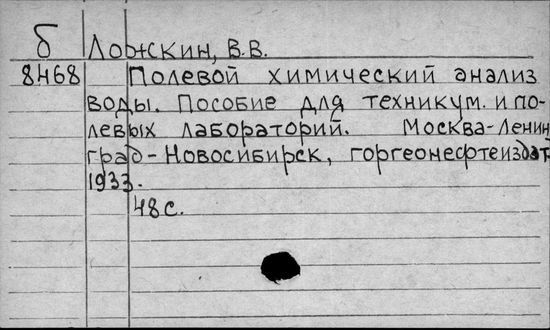 б Ложкин, В.В.
8468 Полевой химический анализ
воды. Пособие для техникум. и по-
левых лабораторий. Москва-Ленин
град-Новосибирск, горгеонефтеиздат
1933.
48 с.